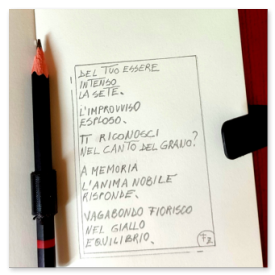 DEL TUO ESSERE
INTENSO
LA SETE.
L'IMPROVVISO
ESPLOSO.
TI RICONOSCI
NEL CANTO DEL GRANO?
A MEMORIA
L'ANIMA NOBILE
RISPONDE.
VAGABONDO FIORISCO
NEL GIALLO
EQUILIBRIO.